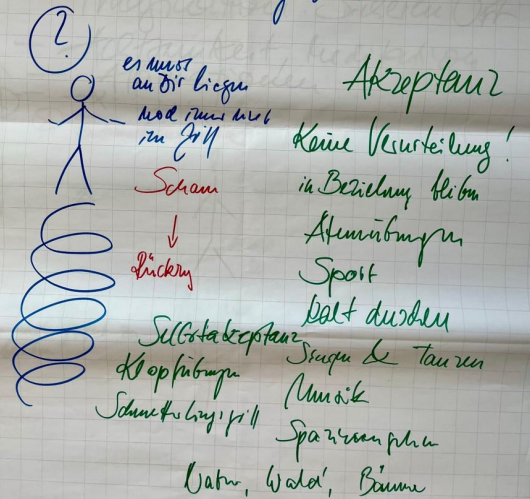 ?
es muss
an Dir liegen
noch immer nicht
im Griff
Scham
Rückzug
Selbstakzeptanz
Klopfübungen
Schmetterlingsgriff
Akzeptanz
Keine Verurteilung!
in Beziehung bleiben
Atemübungen
Sport
kalt duschen
Singen & Tanzen
Musik
Spazierengehen
Natur, Wald, Bäume